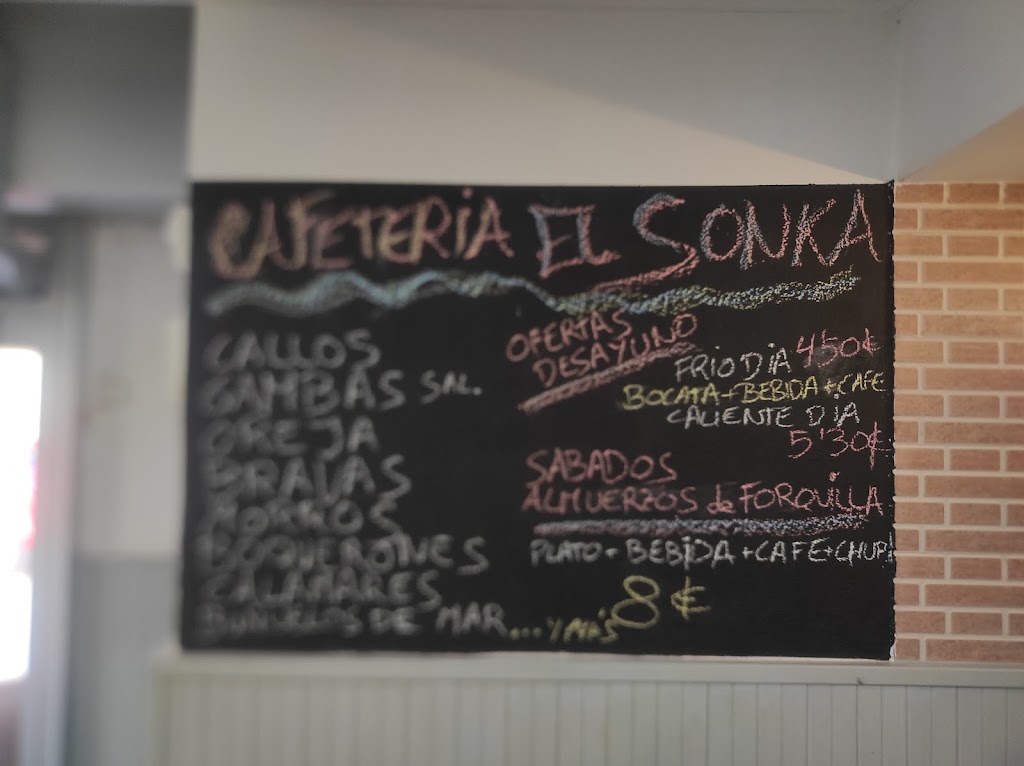 CAFETERIA EL SONKA
CALLOS
GAMBAS SAL.
OREJA
BRAVAS
MORROS
BOQUERONES
CALAMARES
BUÑUELOS DE MAR... Y MÁS
OFERTAS
DESAYUNO
FRIO DIA 4'50€
BOCATA+BEBIDA+CAFE
CALIENTE DIA
5'30€
SABADOS
ALMUERZOS de FORQUILLA
PLATO+BEBIDA+CAFE+CHUPI
8€